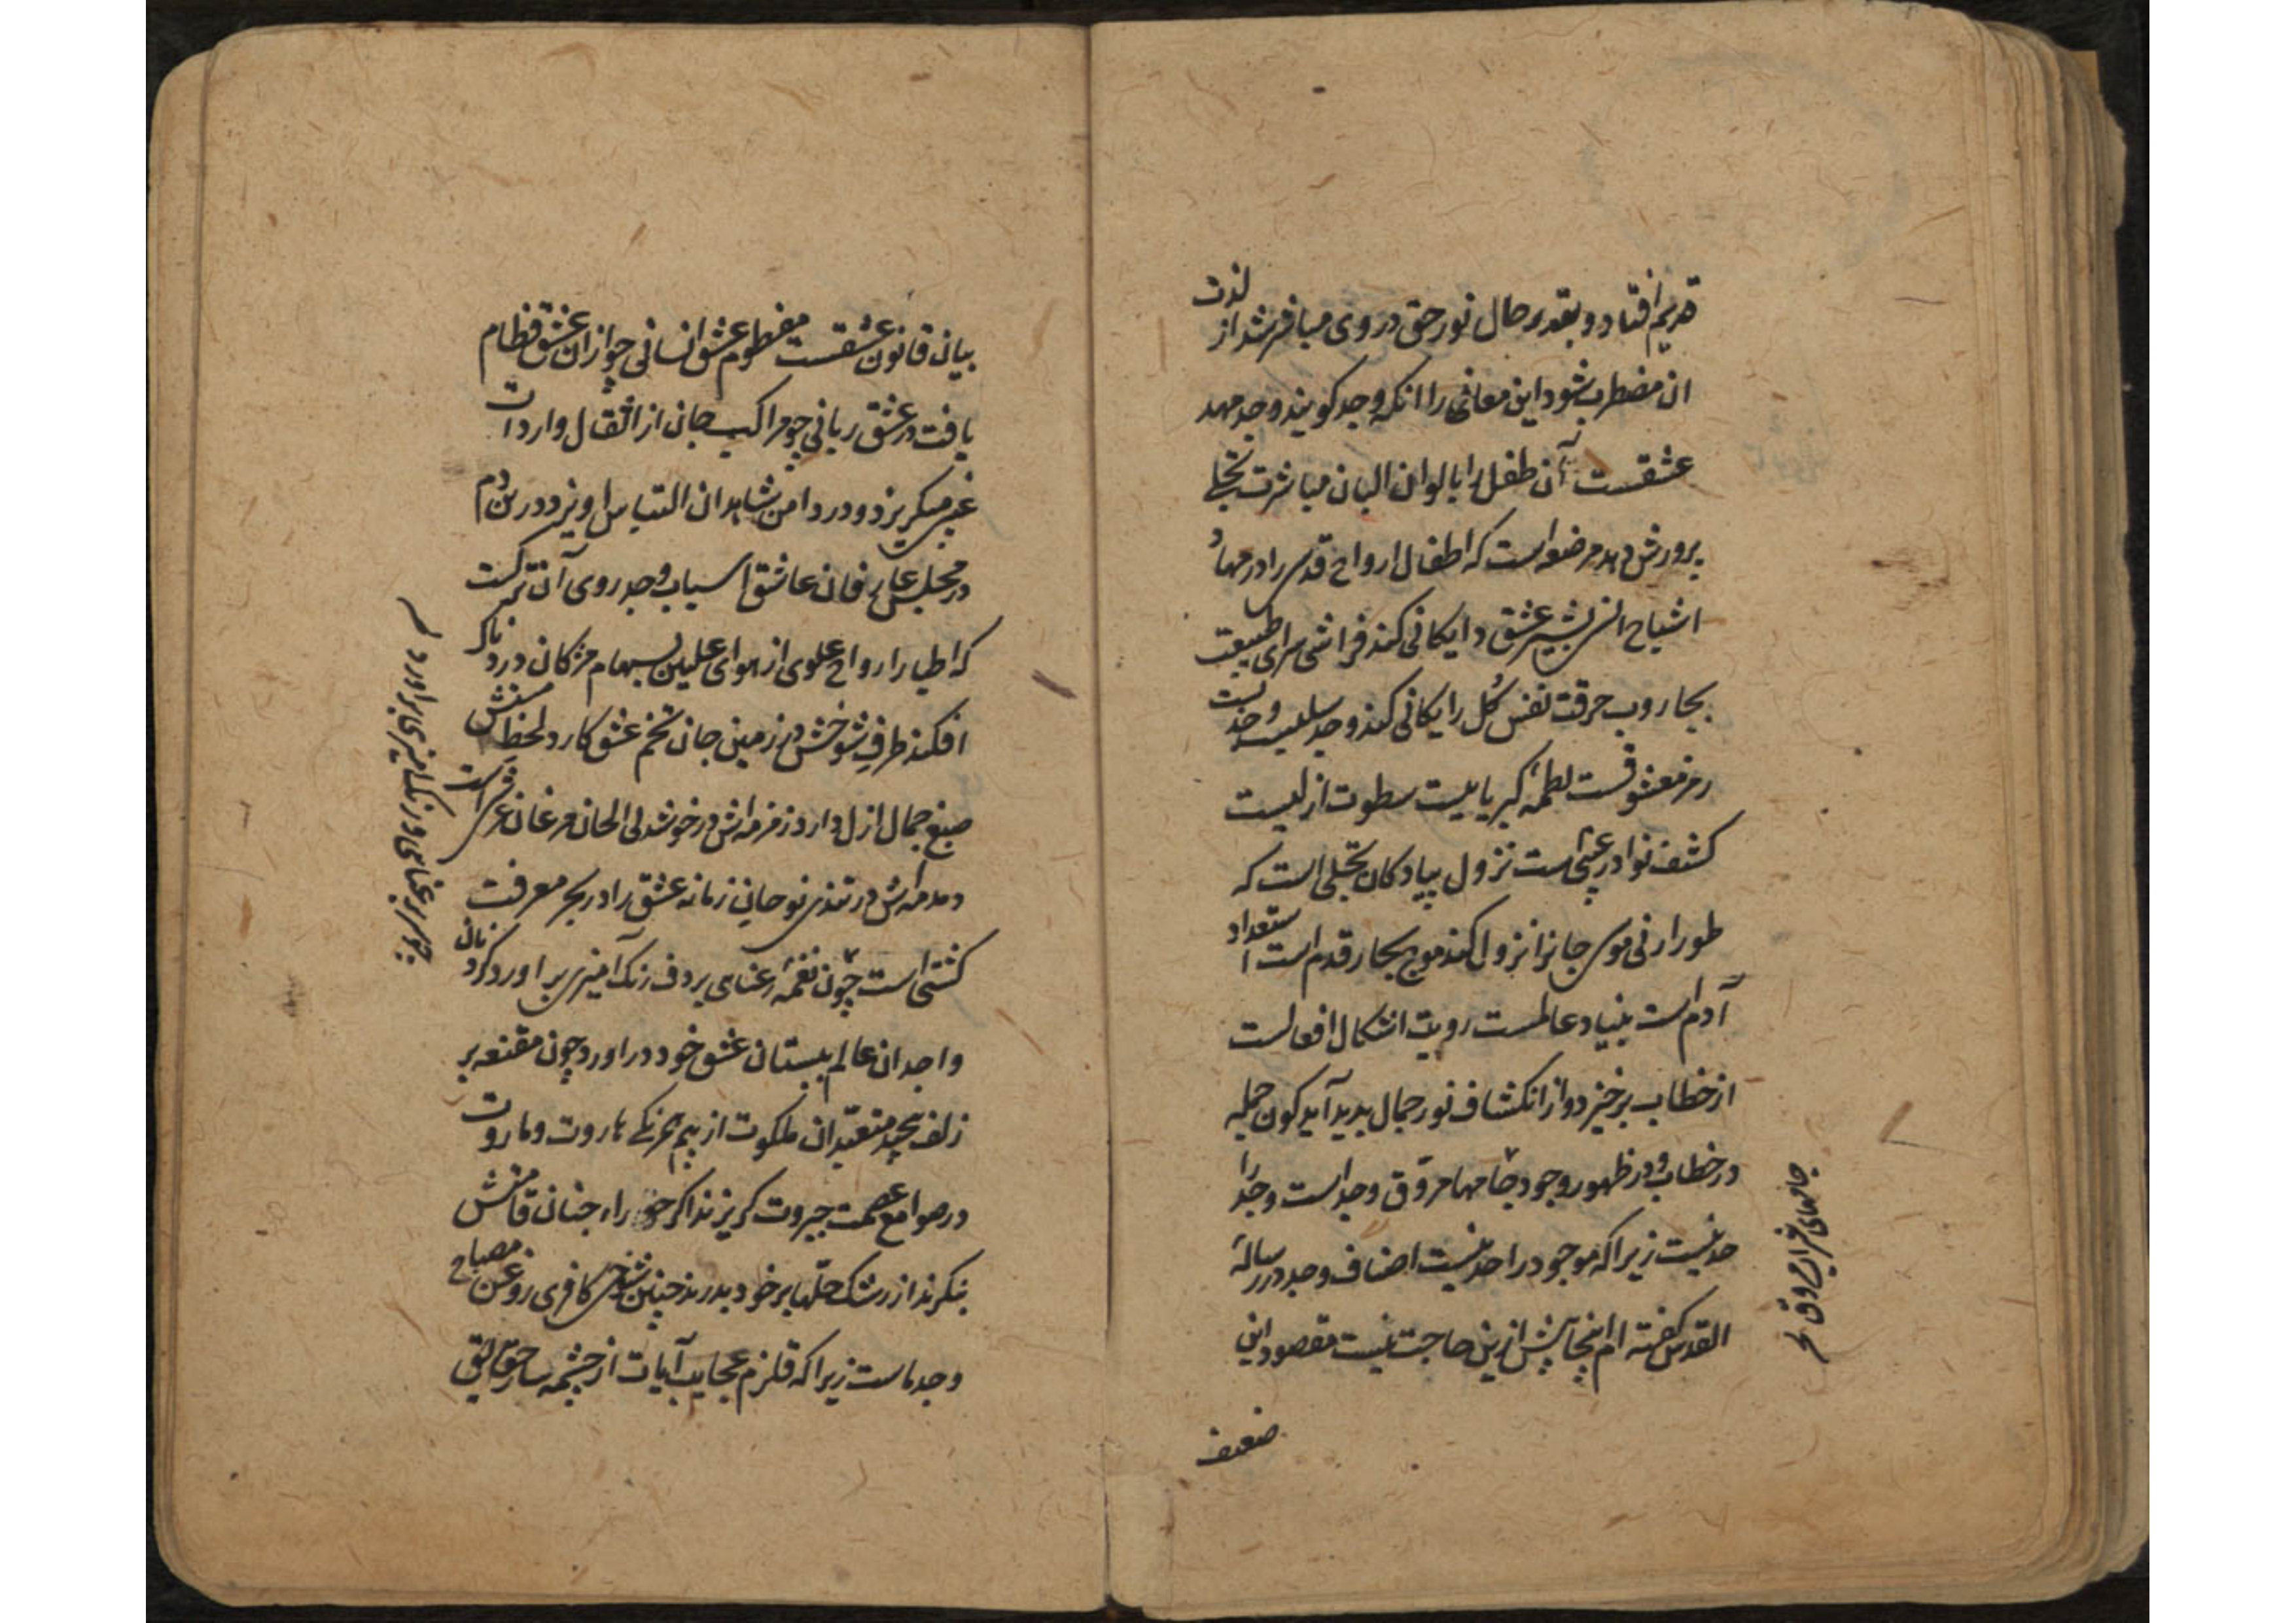 قدیم افتاد و بقدر حال نور حق در وی مباشر شد از لذت
ان مضطرب شود این معانی را انکه وجد کویند وجد مهد
عشقست آن طفل را بالوان البان مباشرت تجلی
پرورش دهد مرضعه است که اطفال ارواح قدسی را در مهاد
اشباح انس بشیر عشق دایکانی کند فراشی سرای طبیعت
بجاروب حرقت نفس کل رایکانی کند وجد سلبیست وجدیست
رمز معشوقست لطمهٔ کبریاییست سطوت ازلیست
کشف نوادر غیبی است نزول پیادکان تجلی است که
طور ارنی موسی جانرا نزول کند موج بحار قدم است استعداد
آدم است بنیاد عالمست رویت اشکال افعالست
از خطاب برخیزد و از انکشاف نور جمال پدید آید کون جمله
در خطاب و در ظهور وجود جامهاء مروق وجد است وجد را
حد نیست زیرا که موجود را حد نیست اصناف وجد در رسالهٔ
القدس کفته ام اینجا پیش ازین حاجت نیست مقصود این
ضعیف
جامهای مروق
بیان قانون عشقست مفطوم عشق انسانی چو از ان عشق فطام
یافت در عشق ربانی چو مراکب جان از اثقال واردات
غیب میکریزد و در دامن شاهدان التباس اویزد درین دم
در مجلس عارفان عاشق اسباب وجد روی آن ترکست
که اطیار ارواح علوی از هوای علیین بسهام مژکان دردناک
افکند طرف شوخش در زمین جان تخم عشق کارد لحظاتش
صبغ جمال ازل دارد زمزمه اش در خوشدلی الحان مرغان عرش است
دمدمه اش در تندی نوحانی زمانه عشق را در بحر معرفت
کشتی است چون نغمهٔ رعنای بر دف رنک آمیزی براورد کردنان
واجدان عالم ببستان عشق خود دراورد چون مقنعه بر
زلف پیچد متعبدان ملکوت از بیم همرنکی هاروت و ماروت
در صوامع عصمت جبروت کریزند اکر حور راه جنان قامتش
بنکرند از رشک حلها بر خود بدرند چنین شاهی کافری روغن مصباح
وجد ماست زیرا که قلزم عجایب آیات از چشمه سار حقایق